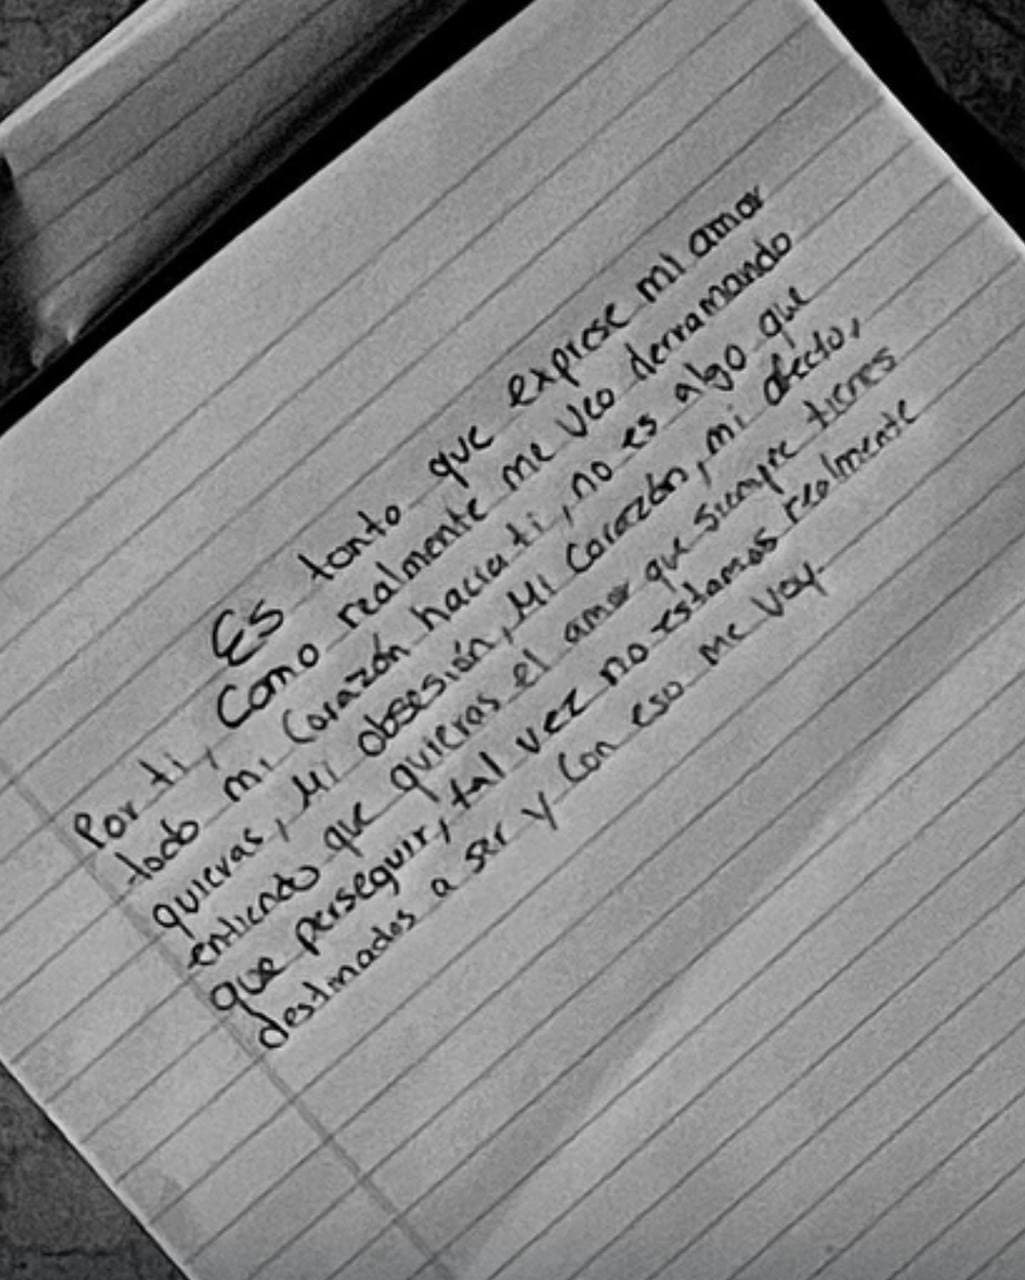 Es tonto que exprese mi amor
Por ti, como realmente me veo derramando
todo mi corazón hacia ti, no es algo que
quieras, Mi obsesión, Mi corazón, mi afecto,
entiendo que quieras el amor que siempre tienes
que perseguir, tal vez no estamos realmente
destinados a ser y con eso me voy.